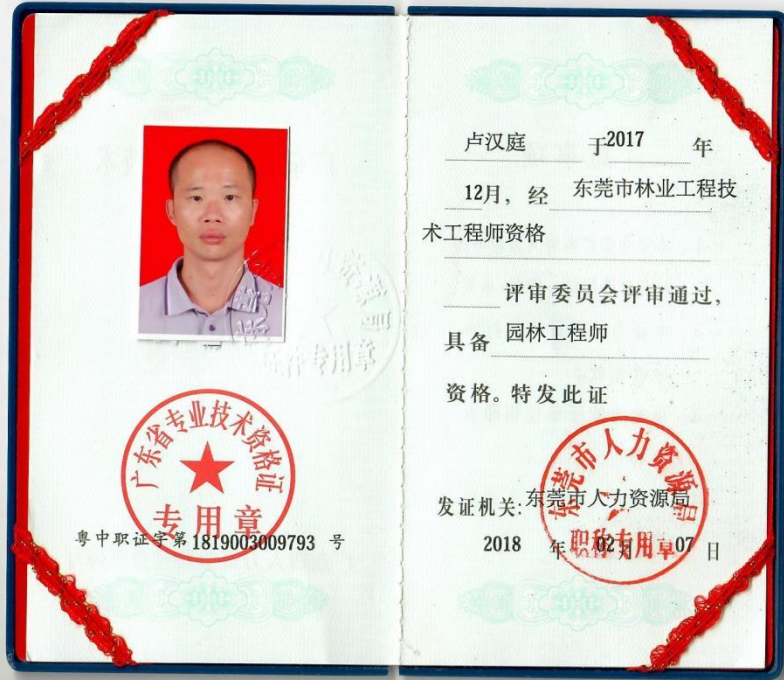 广东省专业技术资格证
专用章
粤中职证字第1819003009793 号
卢汉庭 于2017 年
12月，经 东莞市林业工程技
术工程师资格
评审委员会评审通过，
具备 园林工程师
资格。特发此证
东莞市人力资源局
发证机关:东莞市人力资源局
2018 年 02月 07日
职称专用章